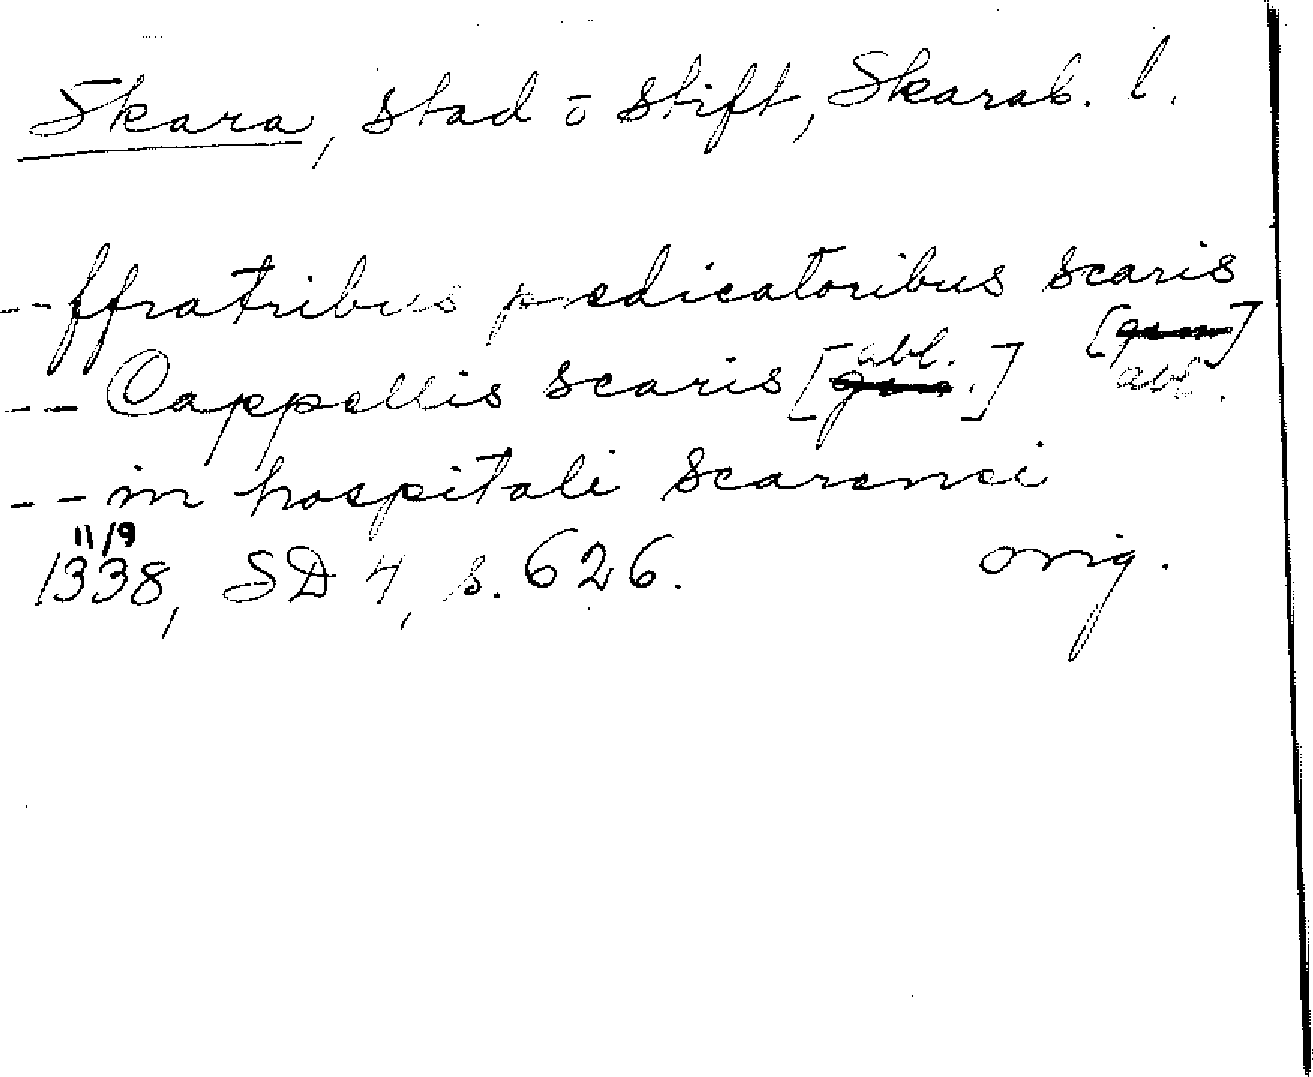 Skara, stad o stift, Skarab. l.
-- ffratribus predicatoribus scaris
[abl.]
-- Cappellis scaris [abl.]
-- in hospitali scarensi
11/9
1338, SD 4, s. 626. orig.